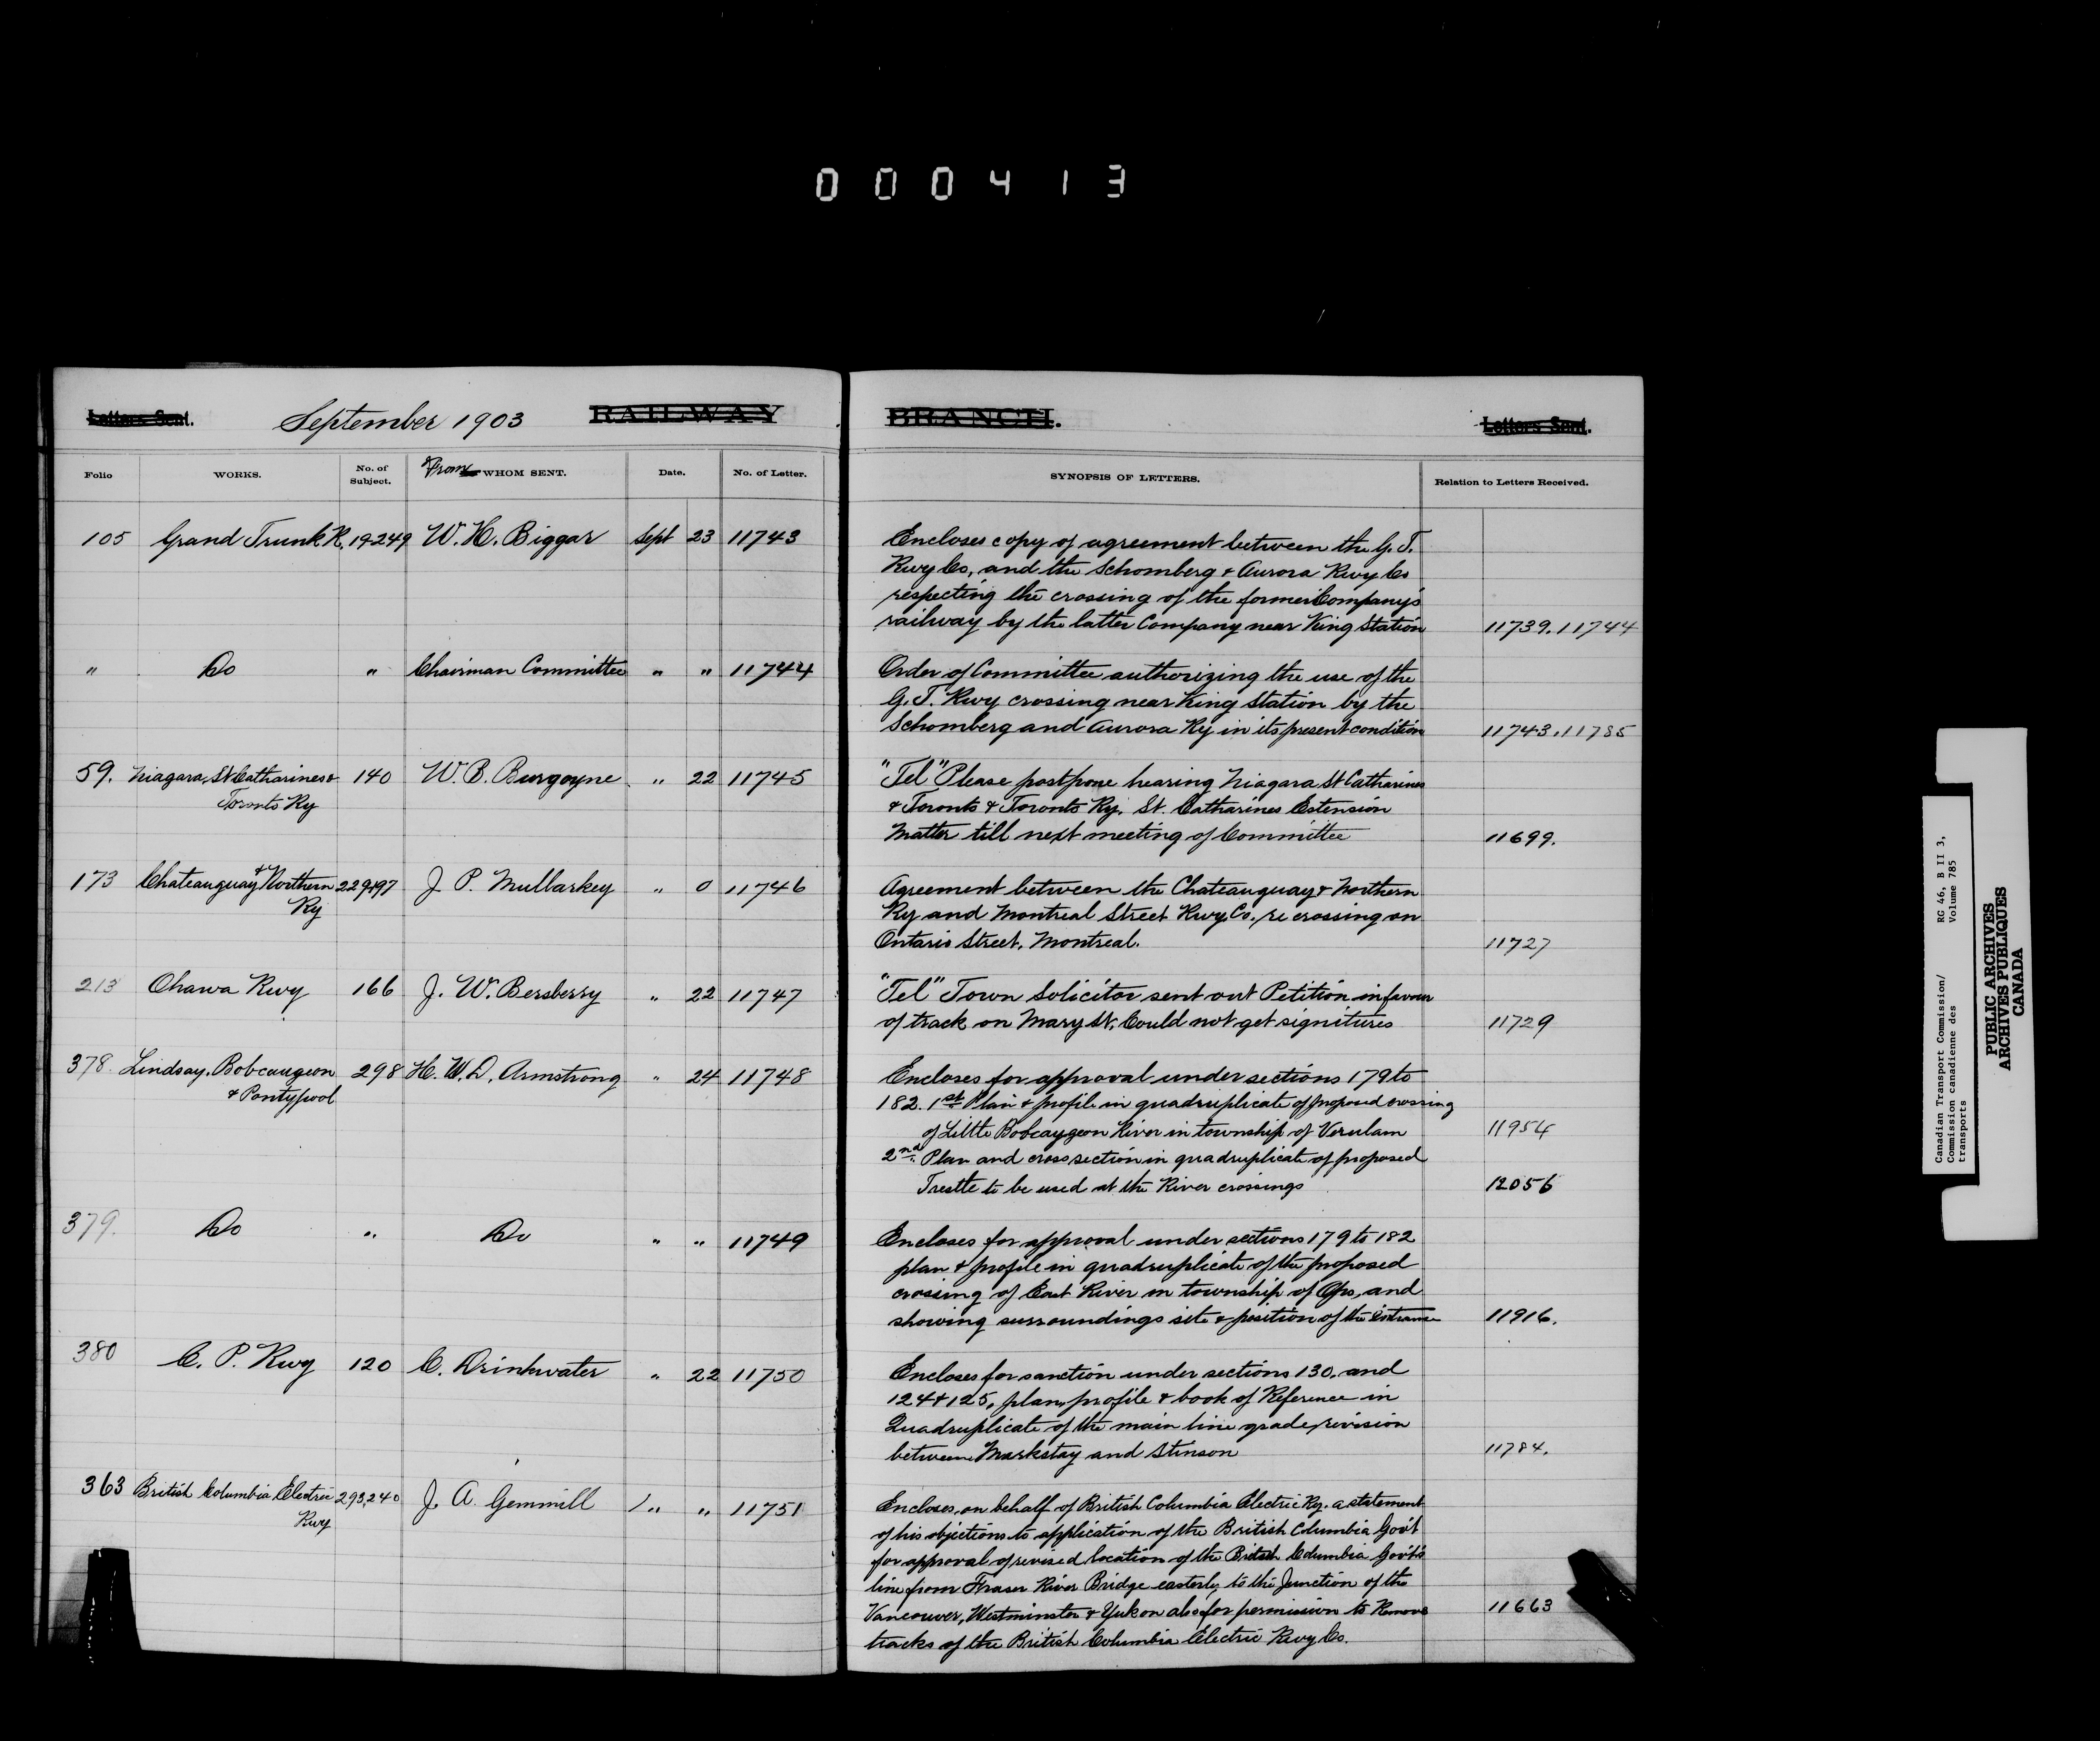 000413
Letters Sent. September 1903 RAILWAY BRANCH. Letters Sent.
Folio WORKS. No. of Subject. From WHOM SENT. Date. No. of Letter. SYNOPSIS OF LETTERS. Relation to Letters Received.
105 Grand Trunk R. 19249 W. H. Biggar Sept 23 11743 Encloses copy of agreement between the G. T.
Rwy Co, and the Schomberg & Aurora Rwy Co
respecting the crossing of the former Company's
railway by the latter Company near King Station 11739. 11744
" Do " Chairman Committee " " 11744 Order of Committee authorizing the use of the
G. T. Rwy crossing near King Station by the
Schomberg and Aurora Ry in its present condition 11743. 11785
59. Niagara, St Catharines & 140 W. B. Burgoyne " 22 11745 "Tel" Please postpone hearing Niagara St Catharines
Toronto Ry & Toronto & Toronto Ry. St. Catharines Extension
Matter till next meeting of Committee 11699.
173 Chateauguay & Northern 229,197 J. P. Mullarkey " 0 11746 Agreement between the Chateauguay & Northern
Ry Ry and Montreal Street Rwy Co., re crossing on
Ontario Street, Montreal. 11727
213 Ohawa Rwy 166 J. W. Bersberry " 22 11747 "Tel" Town Solicitor sent out Petition in favour
of track on Mary St. Could not get signitures 11729
378. Lindsay, Bobcaugeon 298 H. W. D. Armstrong " 24 11748 Encloses for approval under sections 179 to
& Pontypool 182. 1st Plan & profile in quadruplicate of proposed crossing
of Little Bobcaygeon River in township of Verulam 11954
2nd. Plan and cross section in quadruplicate of proposed
Trestle to be used at the River crossings 12056
379. Do " Do " " 11749 Encloses for approval under sections 179 to 182
plan & profile in quadruplicate of the proposed
crossing of East River in township of Ops, and
showing surroundings site & position of the 11916.
380 C. P. Rwy 120 C. Drinkwater " 22 11750 Encloses for sanction under sections 130, and
124 & 125, plan, profile & book of Reference in
Quadruplicate of the main line grade revision
between Markstay and Stinson 11784.
363 British Columbia Electric 293,240 J. A. Gemmill " " 11751 Encloses, on behalf of British Columbia Electric Ry. a statement
Rwy of his objections to application of the British Columbia Gov't
for approval of revised location of the British Columbia Gov't's
line from Fraser River Bridge easterly to the Junction of the
Vancouver, Westminster & Yukon also for permission to Remove 11663
tracks of the British Columbia Electric Rwy Co.
Canadian Transport Commission/ RG 46, B II 3,
Commission canadienne des Volume 785
transports
PUBLIC ARCHIVES
ARCHIVES PUBLIQUES
CANADA